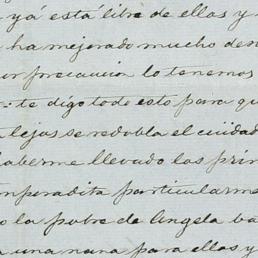 yá está libre de ellas y
ha mejorado mucho des
or precaucion lo tenemos
te digo todo esto para qu
lejos se redobla el cuidad
haberme llevado las prin
mporadita particularme
o la pobre de Angela ba
una nana para ellas y